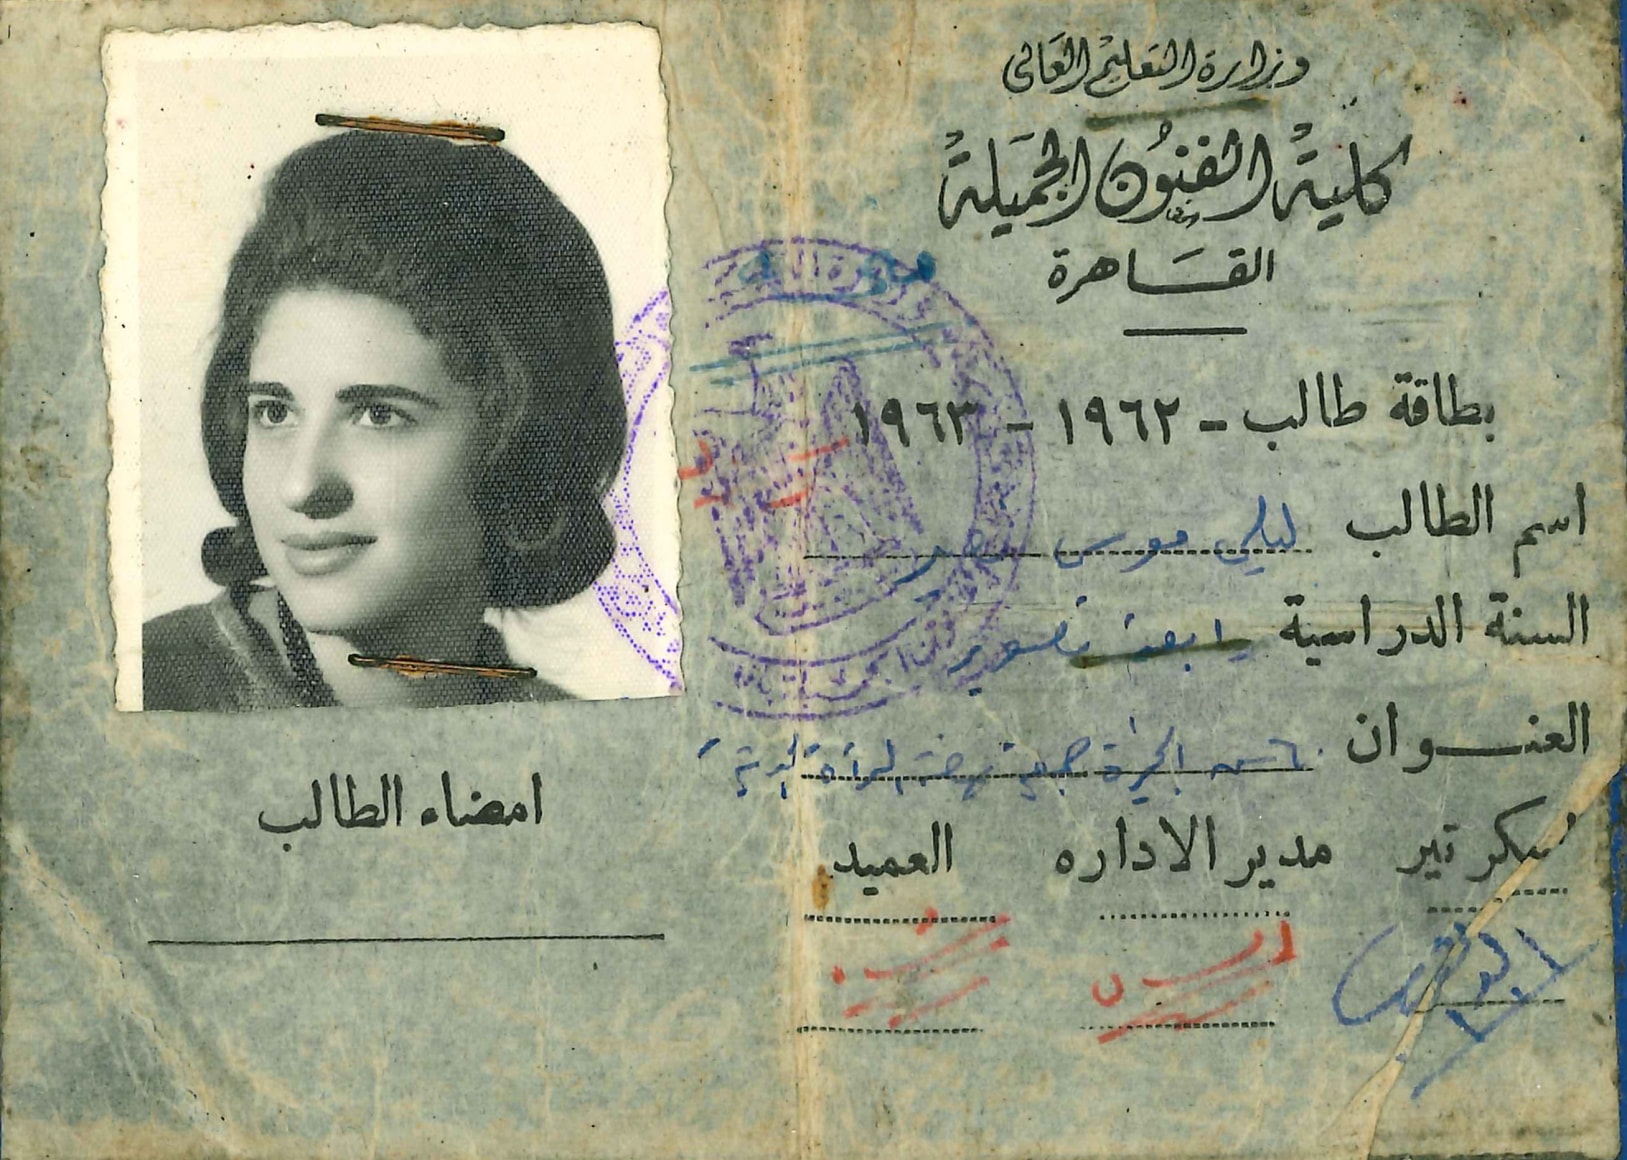 وزارة التعليم العالى
كلية الفنون الجميلة
القاهرة
بطاقة طالب - ١٩٦٢ - ١٩٦٣
اسم الطالب ليلى موسى
السنة الدراسية رابعة تصوير
العنوان ٦٠ ش الجيزة جمعية نهضة المرأة
سكرتير مدير الاداره العميد
امضاء الطالب